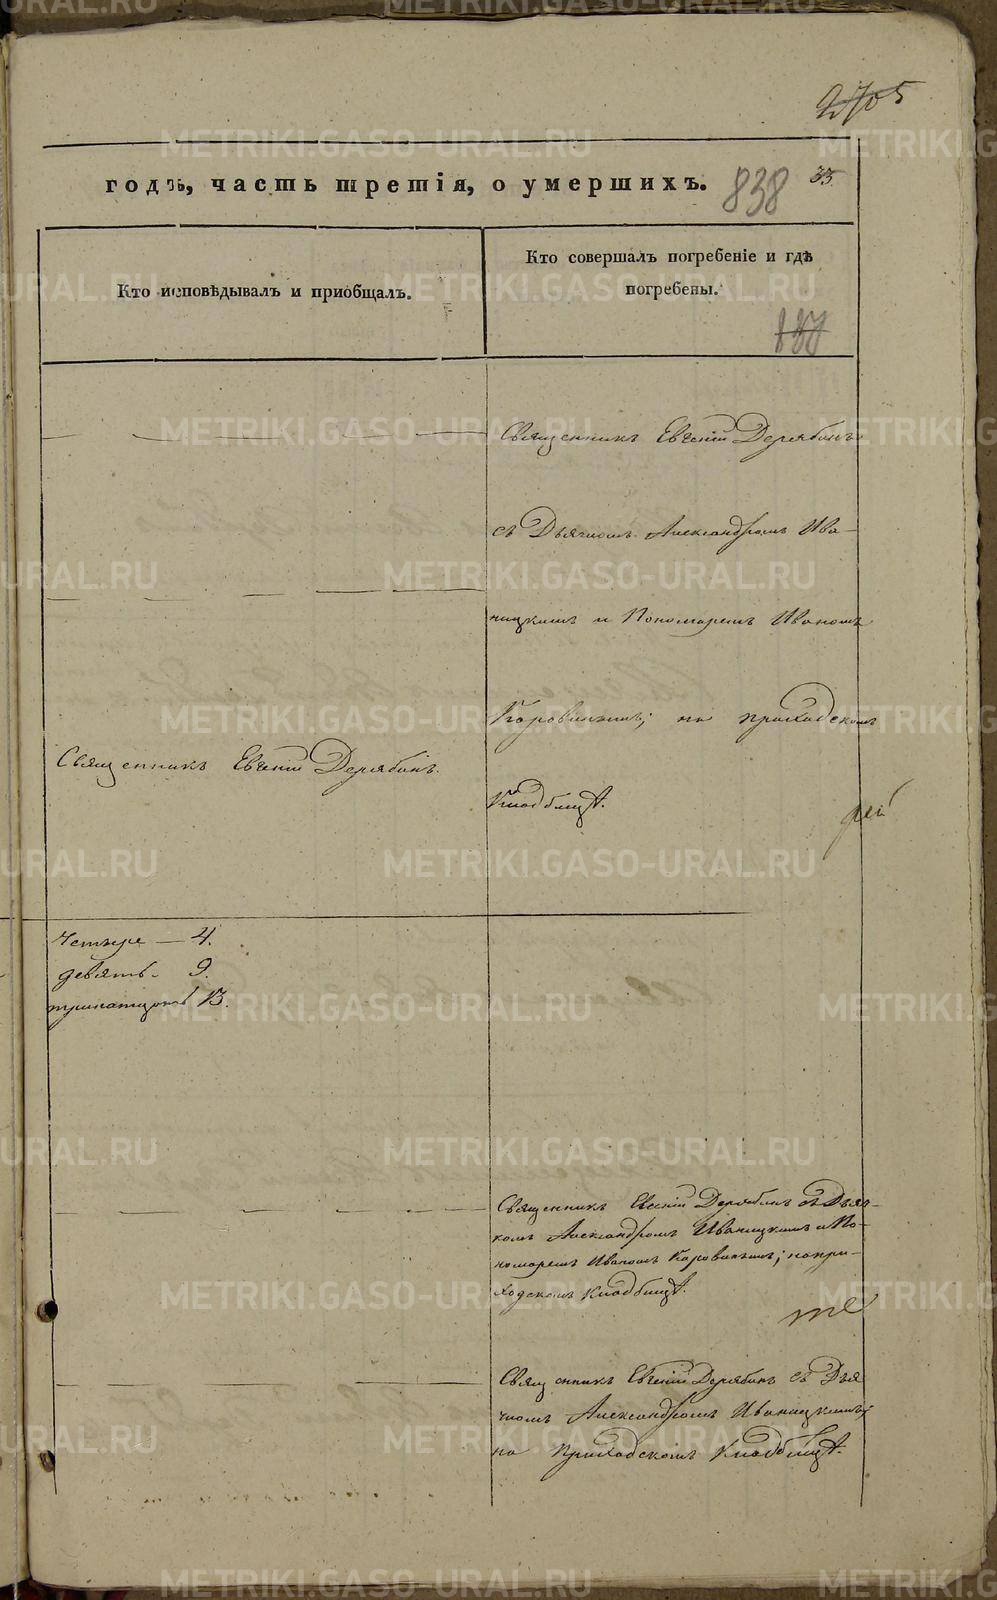 2705
годъ, часть третія, о умершихъ.
838
33
Кто исповѣдывалъ и пріобщалъ.
Кто совершалъ погребеніе и гдѣ
погребены.
837
Священникъ Евгеній Дерябинъ
съ Дьячкомъ Александромъ Ива-
ницкимъ и Пономаремъ Иваномъ
Коровинымъ; на приходскомъ
Кладбищѣ.
Священникъ Евгеній Дерябинъ.
четыре — 4.
девять — 9.
тринатцать 13.
Священникъ Евгеній Дерябинъ съ Дьяч-
комъ Александромъ Иваницкимъ и По-
номаремъ Иваномъ Коровинымъ; на при-
ходскомъ Кладбищѣ.
Священникъ Евгеній Дерябинъ съ Дья-
чкомъ Александромъ Иваницкимъ;
на Приходскомъ Кладбищѣ.
METRIKI.GASO-URAL.RU